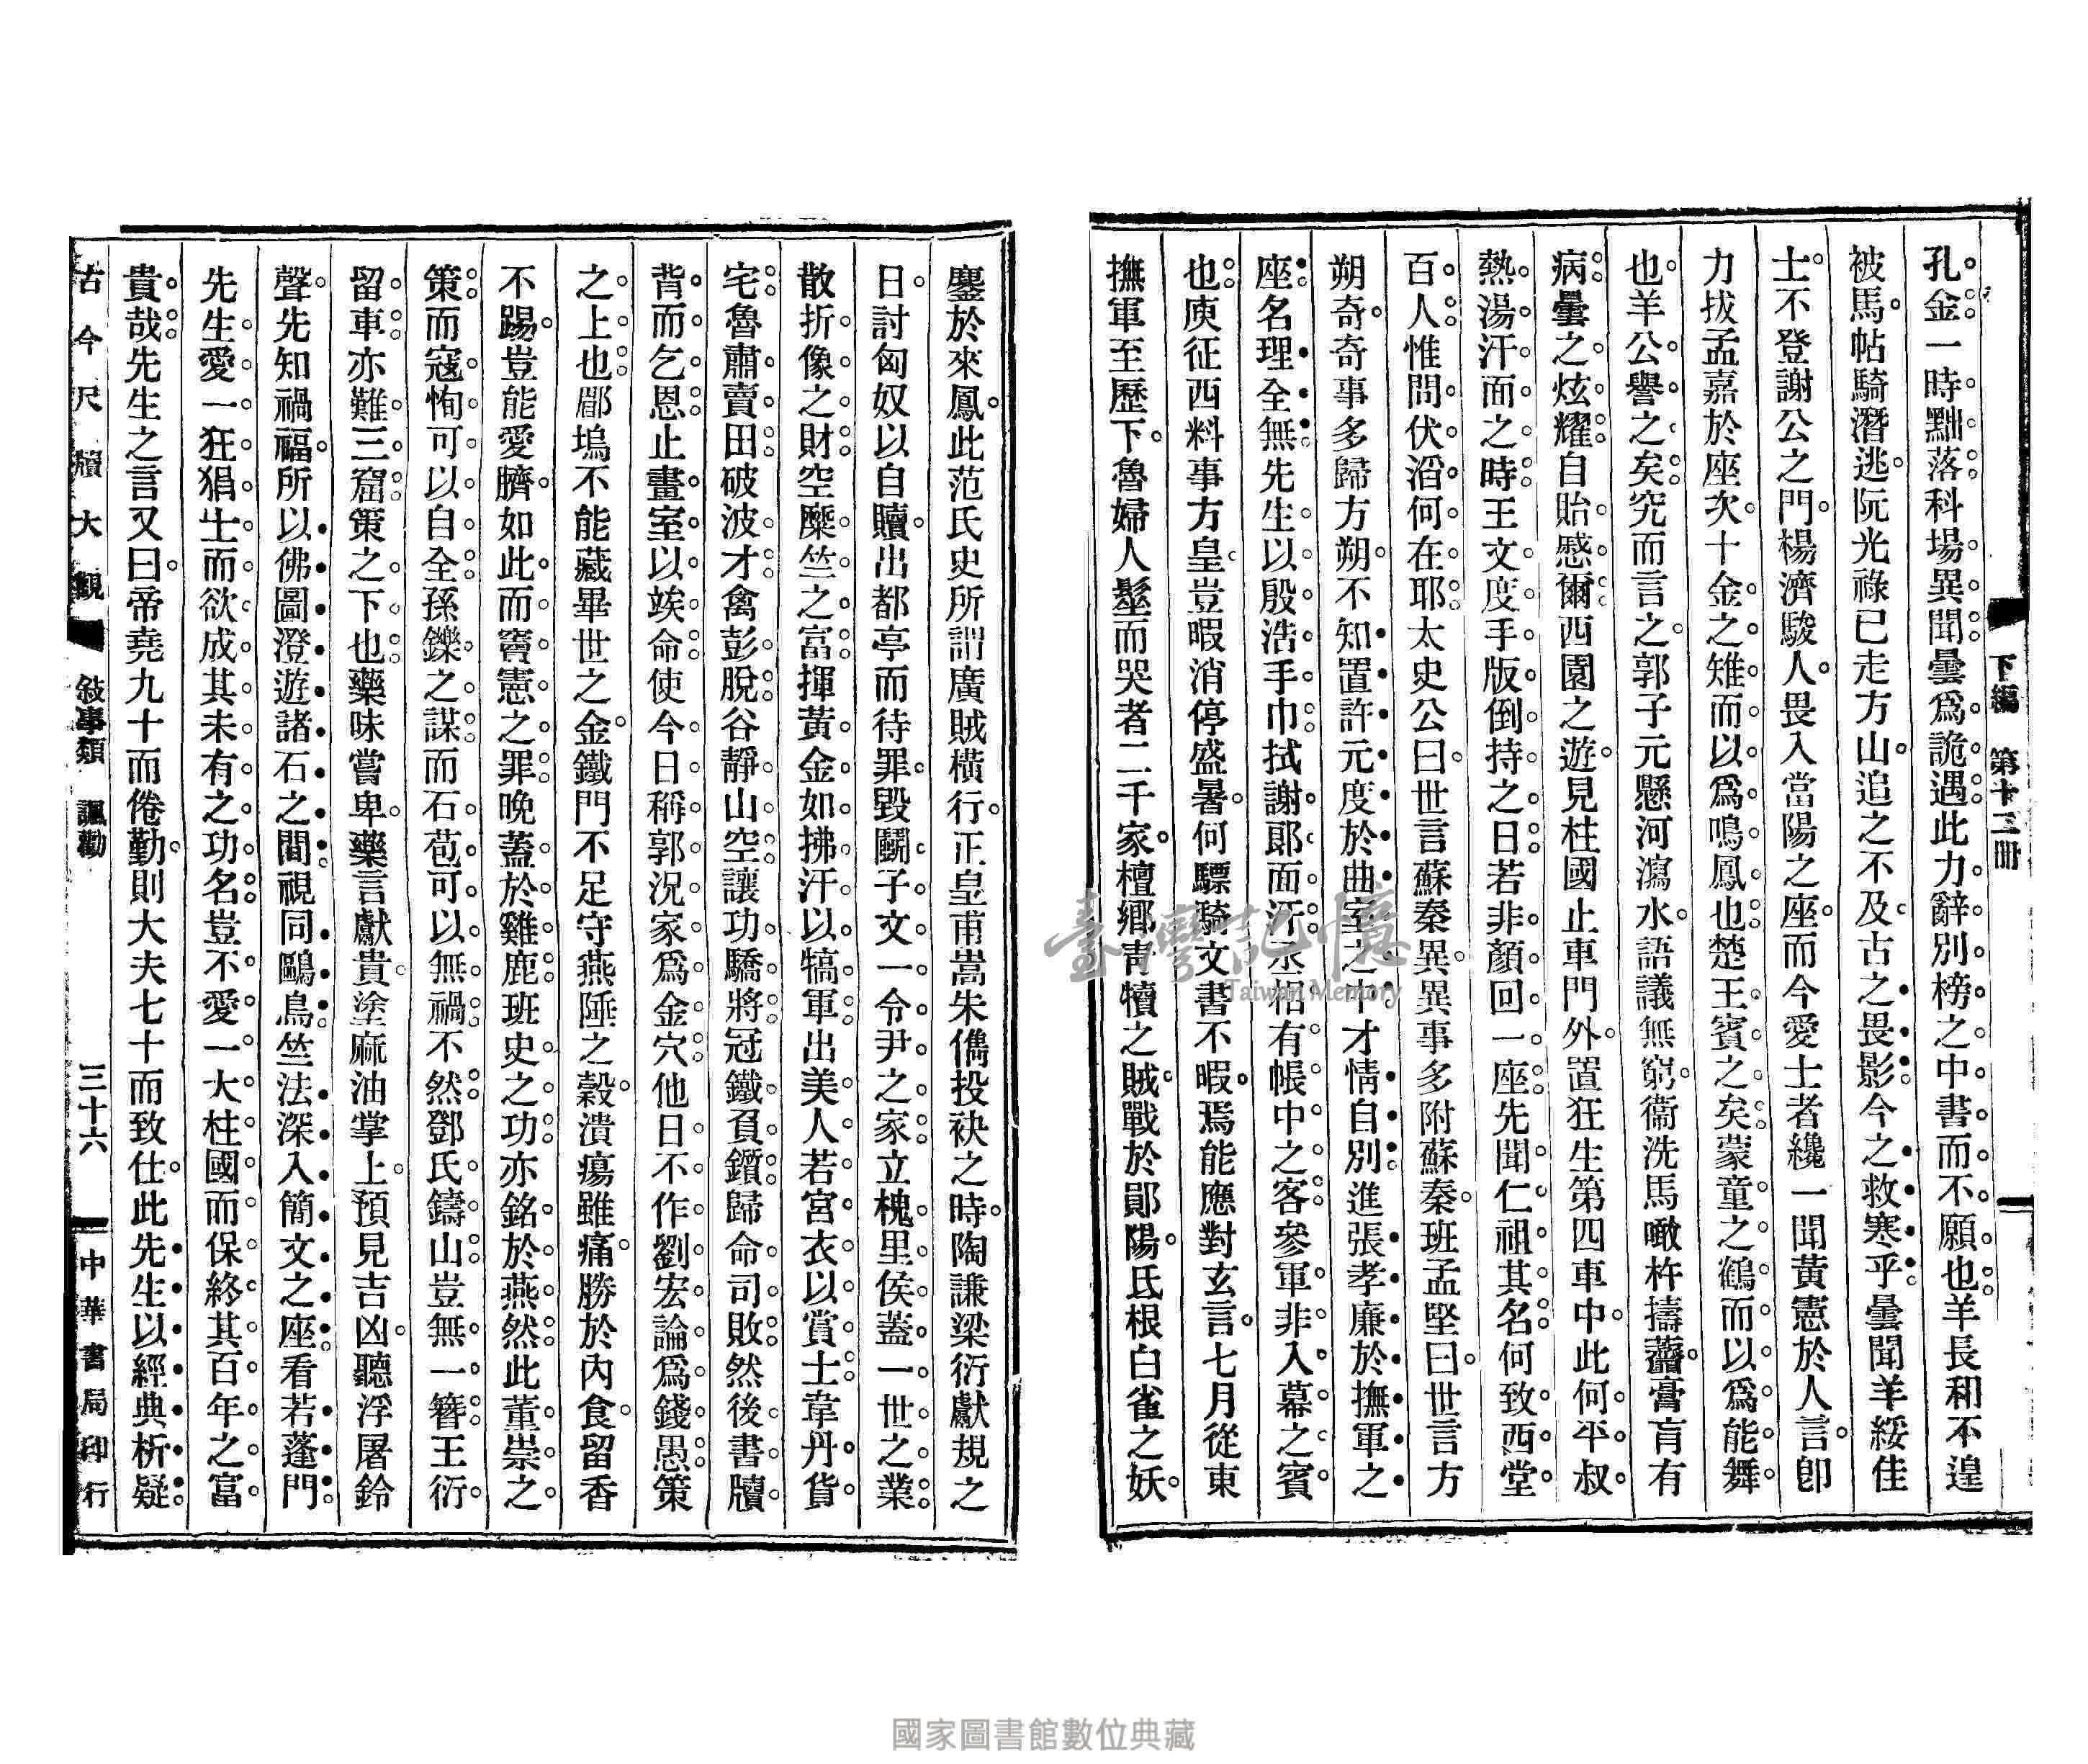 下編　第十三冊
孔金一時黜落科場異聞曇爲詭遇此力辭別榜之中書而不願也羊長和不遑
被馬帖騎潛逃阮光祿已走方山追之不及古之畏影今之救寒乎曇聞羊綏佳
士不登謝公之門楊濟駿人畏入當陽之座而今愛士者纔一聞黃憲於人言卽
力拔孟嘉於座次十金之雉而以爲鳴鳳也楚王賓之矣蒙童之鶴而以爲能舞
也羊公譽之矣究而言之郭子元懸河瀉水語議無窮衞洗馬噉杵擣虀膏肓有
病曇之炫耀自貽慼爾西園之遊見柱國止車門外置狂生第四車中此何平叔
熱湯汗面之時王文度手版倒持之日若非顏回一座先聞仁祖其名何致西堂
百人惟問伏滔何在耶太史公曰世言蘇秦異異事多附蘇秦班孟堅曰世言方
朔奇奇事多歸方朔不知置許元度於曲室之中才情自別進張孝廉於撫軍之
座名理全無先生以殷浩手巾拭謝郎面汗丞相有帳中之客參軍非入幕之賓
也庾征西料事方皇豈暇消停盛暑何驃騎文書不暇焉能應對玄言七月從東
撫軍至歷下魯婦人髽而哭者二千家檀鄉靑犢之賊戰於鄖陽氏根白雀之妖
鏖於來鳳此范氏史所謂廣賊橫行正皇甫嵩朱儁投袂之時陶謙梁衍獻規之
日討匈奴以自贖出都亭而待罪毀鬭子文一令尹之家立槐里侯蓋一世之業
散折像之財空糜竺之富揮黃金如拂汗以犒軍出美人若宮衣以賞士韋丹貨
宅魯肅賣田破波才禽彭脫谷靜山空讓功驕將冠鐵負鑕歸命司敗然後書牘
背而乞恩止畫室以竢命使今日稱郭況家爲金穴他日不作劉宏論爲錢愚策
之上也郿塢不能藏畢世之金鐵門不足守燕陲之穀潰瘍雖痛勝於內食留香
不踢豈能愛臍如此而竇憲之罪晚蓋於雞鹿班史之功亦銘於燕然此董崇之
策而寇恂可以自全孫鑠之謀而石苞可以無禍不然鄧氏鑄山豈無一簪王衍
留車亦難三窟策之下也藥味嘗卑藥言獻貴塗麻油掌上預見吉凶聽浮屠鈴
聲先知禍福所以佛圖澄遊諸石之間視同鷗鳥竺法深入簡文之座看若蓬門
先生愛一狂狷士而欲成其未有之功名豈不愛一大柱國而保終其百年之富
貴哉先生之言又曰帝堯九十而倦勤則大夫七十而致仕此先生以經典析疑
古今尺牘大觀　敍事類　諷勸　三十六　中華書局印行
臺灣記憶
Taiwan Memory
國家圖書館數位典藏